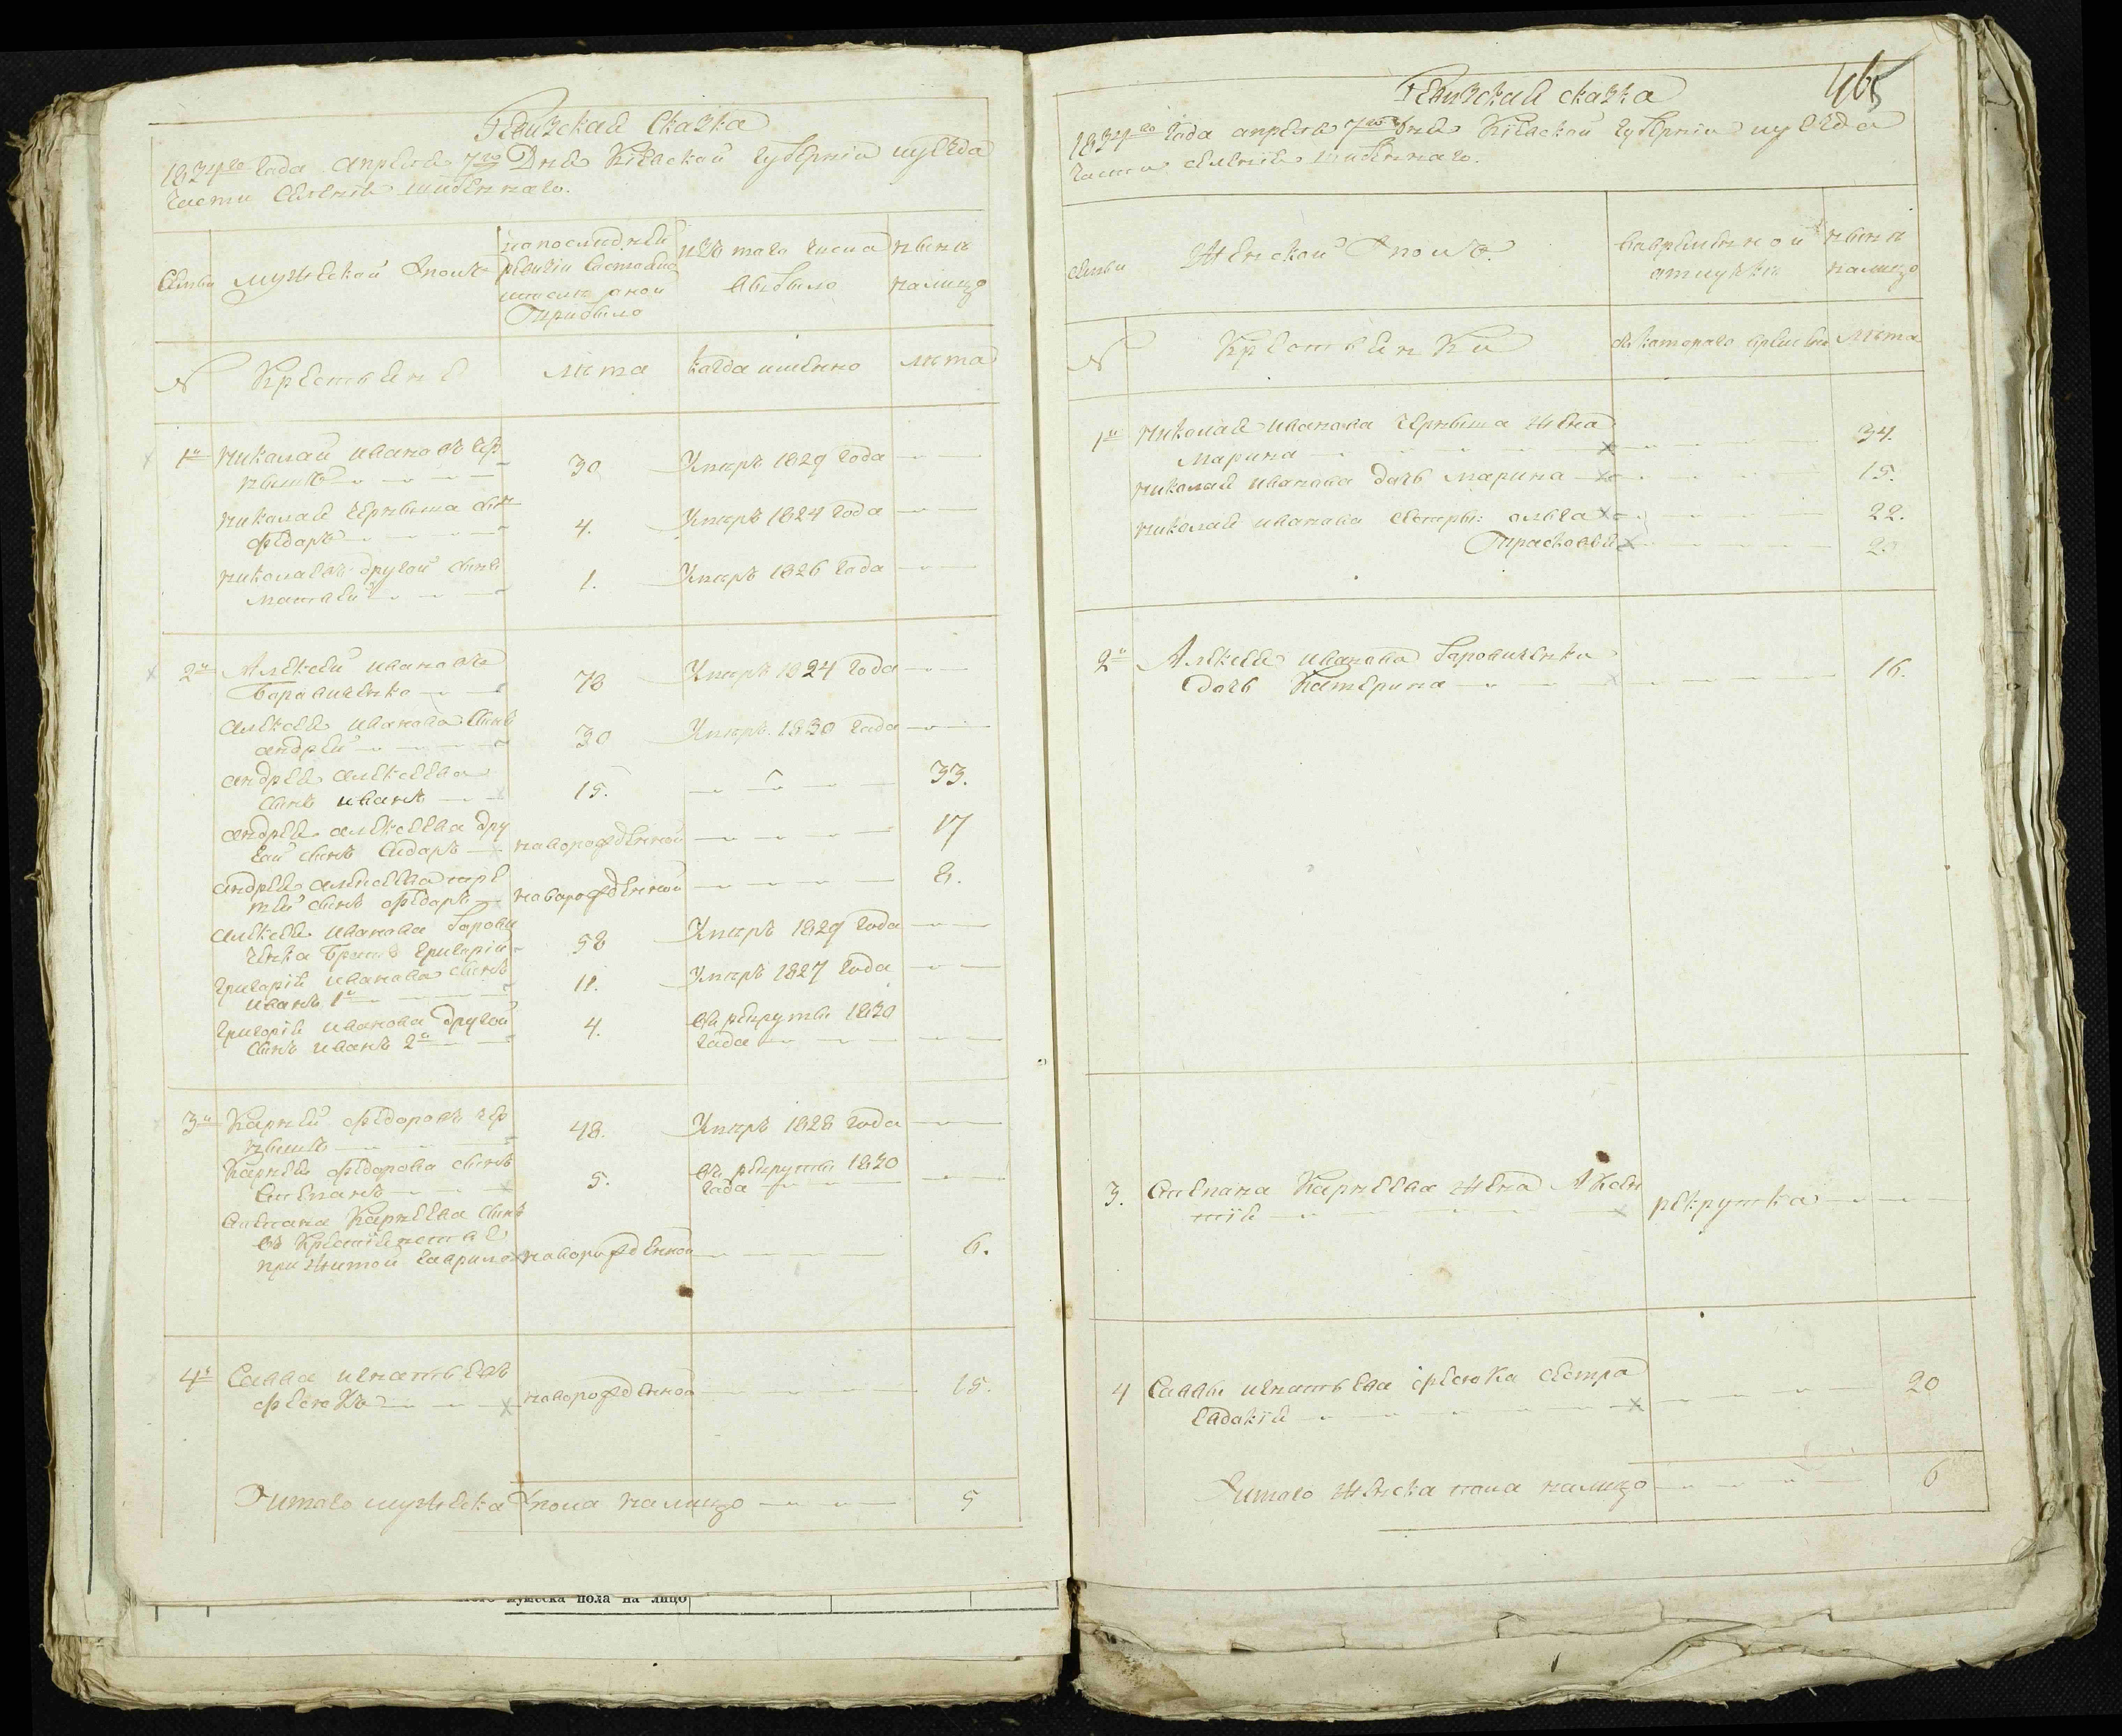 Ревизская Сказка
1834го года апреля 7го Дня Кіевской губерніи и уезда
части Селеніе
Семьи
мужеской полъ
напоследней
ревизіи Состояло
и после оной
Прибыло
изъ того числа
выбыло
ныне
налицо
№
Крестьяне
лета
когда именно
лета
1й
Николай Ивановъ Чер
нышъ
30
Умеръ 1829 года
Николая Черныша сынъ
Федоръ
4.
Умеръ 1824 года
Николаевъ другой сынъ
Матвей
1.
Умеръ 1826 года
2й
Алексей Ивановъ
Боровиченко
78
Умеръ 1824 года
Алексея Иванова Сынъ
андрей
30
Умеръ 1830 года
андрея алексеева
сынъ иванъ
15.
33.
андрея алексеева дру
гой сынъ Сидоръ
новорожденной
17
андрея алексеева тре
тий сынъ Федоръ
новорожденной
8.
Алексея Иванова Борови
ченка Братъ Григорій
58
Умеръ 1829 года
Григорія Иванова сынъ
иванъ 1й
11.
Умеръ 1827 года
Григорія Иванова другой
сынъ иванъ 2й
4.
въ рекруты 1830
года
3й
Карней Федоровъ Чер
нышъ
48.
Умеръ 1828 года
Карнея Федорова сынъ
Степанъ
5.
въ рекруты 1830
года
Степана Карнеева сынъ
въ Крестіенстве
прижитой Гаврило
новорожденной
6.
4й
Савва игнатьевъ
новорожденной
15.
Итого мужеска пола налицо
5
мужеска пола на лицо
465
Ревизская сказка
1834го года апреля 7го дня Кіевской губерніи и уезда
части селеніе
семьи
Женской полъ
вовременной
отлучки
ныне
налицо
№
Крестьянки
съкоторого времени
лета
1й
Николая иванова Черныша жена
Марина
34.
Николая иванова дочь Марина
15.
Николая иванова сестры: ольга
22.
Прасковья
2й
Алексея иванова Боровиченка
дочь Катерина
16.
3.
Степана Карнеева жена
рекрутка
4
Саввы игнатьева сестра
Евдокія
20
Итого женска пола налицо
6